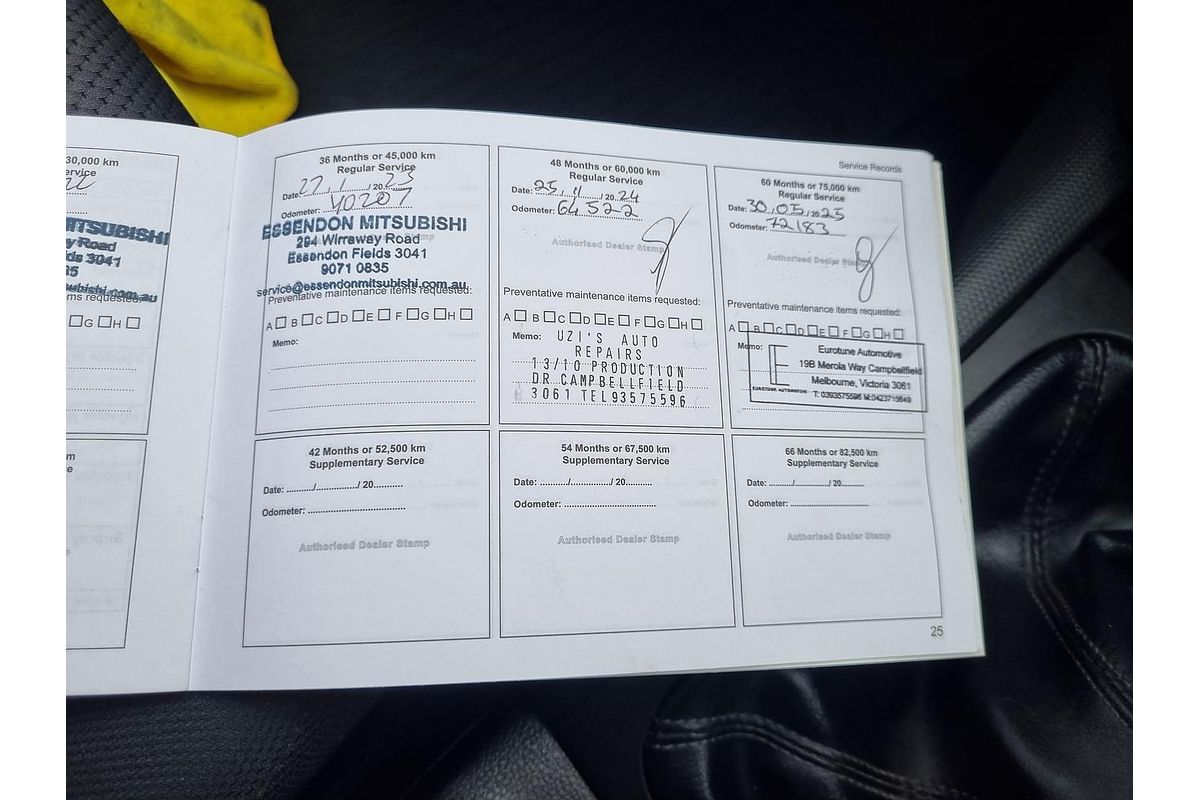 30,000 km
Service Records
36 Months or 45,000 km
Regular Service
Date: 27/1/2023
Odometer: 40207
ESSENDON MITSUBISHI
294 Wirraway Road
Essendon Fields 3041
9071 0835
service@essendonmitsubishi.com.au
Preventative maintenance items requested:
A B C D E F G H
Memo:
48 Months or 60,000 km
Regular Service
Date: 25/11/2024
Odometer: 64522
Authorised Dealer Stamp
Preventative maintenance items requested:
A B C D E F G H
Memo: UZI'S AUTO
REPAIRS
13/10 PRODUCTION
DR CAMPBELLFIELD
3061 TEL93575596
60 Months or 75,000 km
Regular Service
Date: 30/05/2025
Odometer: 72183
Authorised Dealer Stamp
Preventative maintenance items requested:
A B C D E F G H
Memo:
Eurotune Automotive
19B Merola Way Campbellfield
Melbourne, Victoria 3061
EUROTUNE AUTOMOTIVE
T: 0393575596 M:0423715849
MITSUBISHI
Road
3041
ms requested:
G H
42 Months or 52,500 km
Supplementary Service
Date: ........../................/ 20..........
Odometer: ................................
Authorised Dealer Stamp
54 Months or 67,500 km
Supplementary Service
Date: ........../................/ 20..........
Odometer: ................................
Authorised Dealer Stamp
66 Months or 82,500 km
Supplementary Service
Date: ........../................/ 20..........
Odometer: ................................
Authorised Dealer Stamp
25